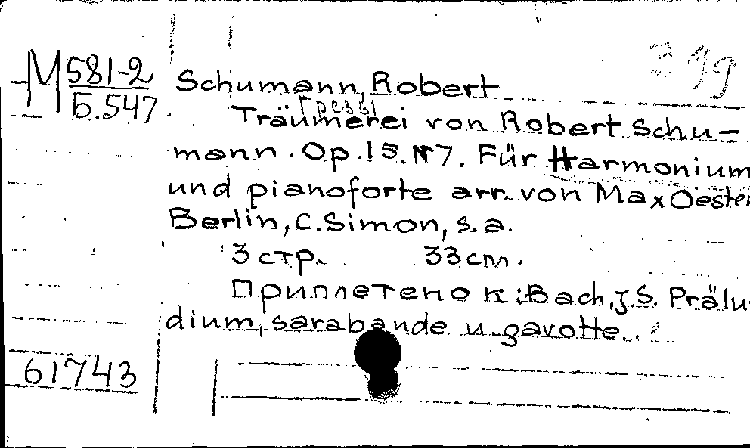 399
М 581-2
Б.547
Schumann, Robert
Грезы
Träumerei von Robert Schu-
mann. Op. 15. N7. Für Harmonium
und pianoforte arr. von Max Oester
Berlin, C. Simon, s. a.
3 стр. 33 см.
Приплетено к: Bach, J. S. Prälu
dium, sarabande u. gavotte.
61743